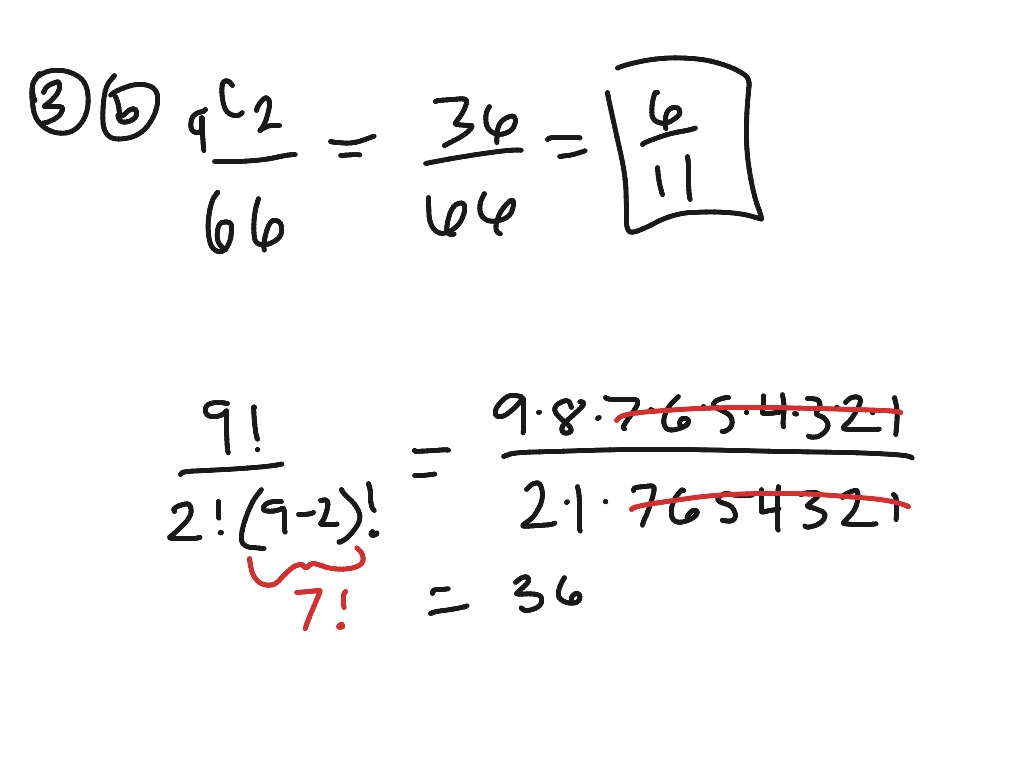 ③ ⓑ ₉C₂/66 = 36/66 = 6/11
9!/2!(9-2)! = 9·8·7·6·5·4·3·2·1/2·1·7 6 5 4 3 2 1
7! = 36